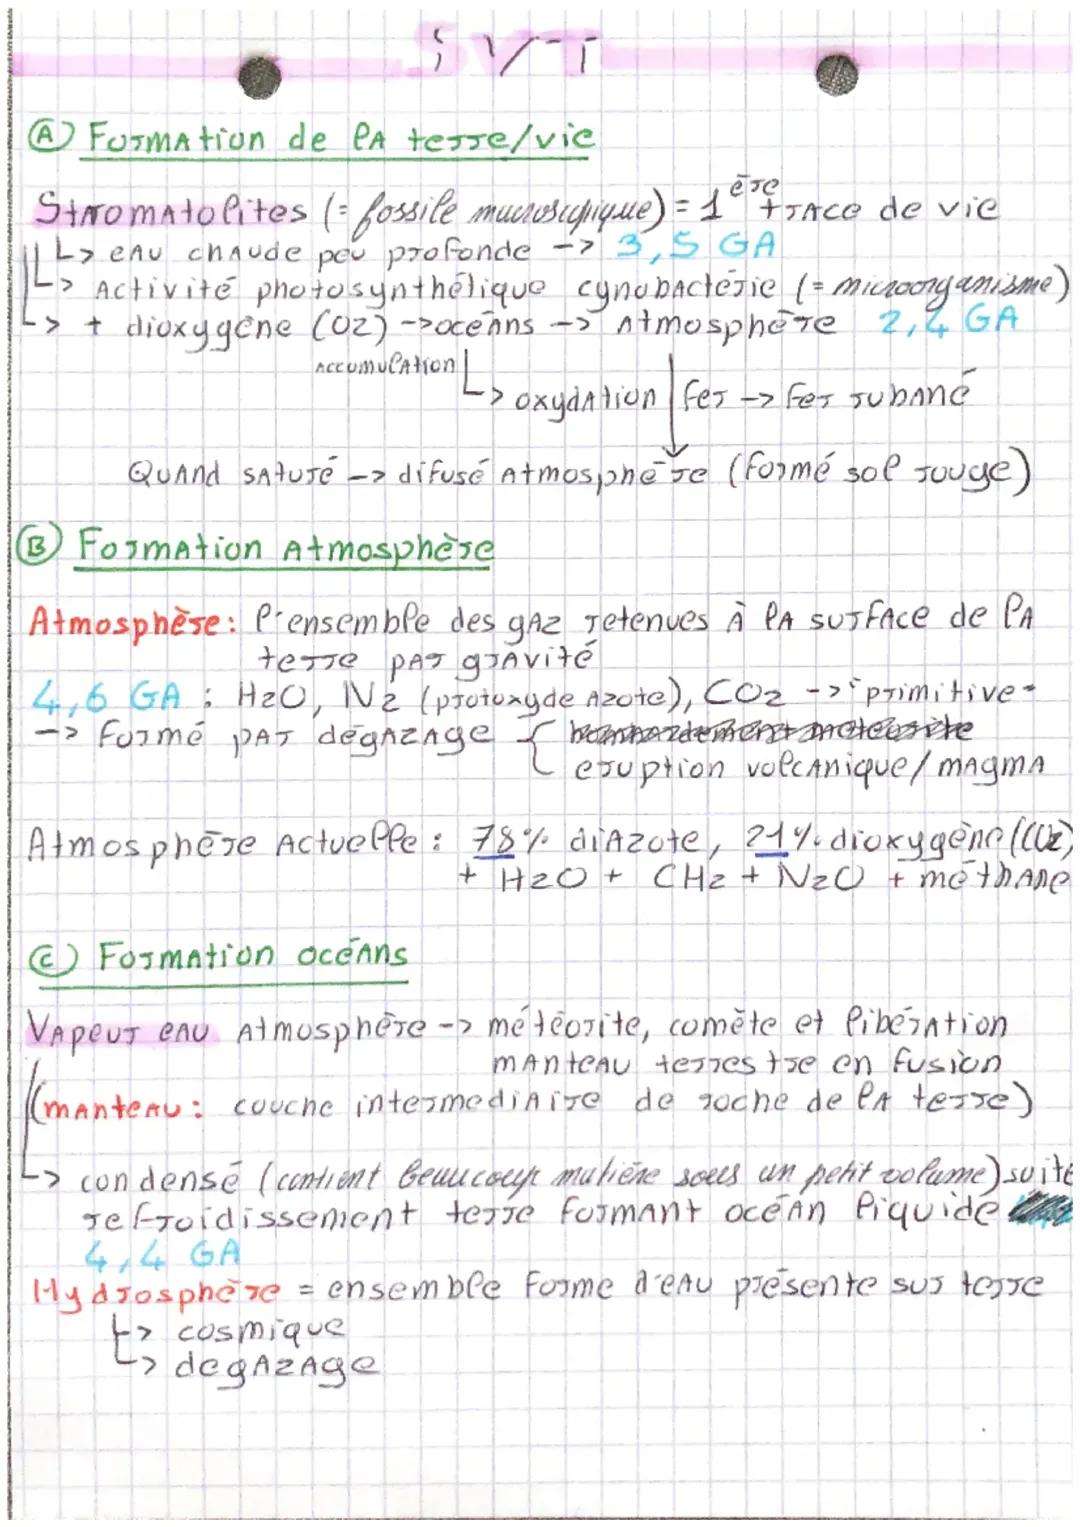 SVT
Ⓐ Formation de la terre/vie
Stromatolites (= fossile macroscopique) = 1ère trace de vie
↳ eau chaude peu profonde -> 3,5 GA
↳ Activité photosynthélique cynobactérie (= microorganisme)
↳ + dioxygène (O2) -> océans -> Atmosphère 2,4 GA
Accumulation
↳ oxydation fer -> fer rubané
Quand saturé -> difusé Atmosphère (formé sol rouge)
Ⓑ Formation Atmosphère
Atmosphère : l'ensemble des gaz retenues à la surface de la
terre par gravité
4,6 GA : H2O, N2 (protoxyde Azote), CO2 -> "primitive"
-> Formé par dégazage { bombardement météorite
eruption volcanique/magma
Atmosphère Actuelle : 78% diazote, 21% dioxygène (CO2)
+ H2O + CH2 + N2O + méthane
Ⓒ Formation océans
Vapeur eau Atmosphère -> météorite, comète et libération
manteau terrestre en fusion
(manteau : couche intermediaire de roche de la terre)
↳ condensé (contient beaucoup matière sous un petit volume) suite
refroidissement terre formant océan liquide
4,4 GA
Hydrosphère = ensemble forme d'eau présente sur terre
↳ cosmique
↳ degazage